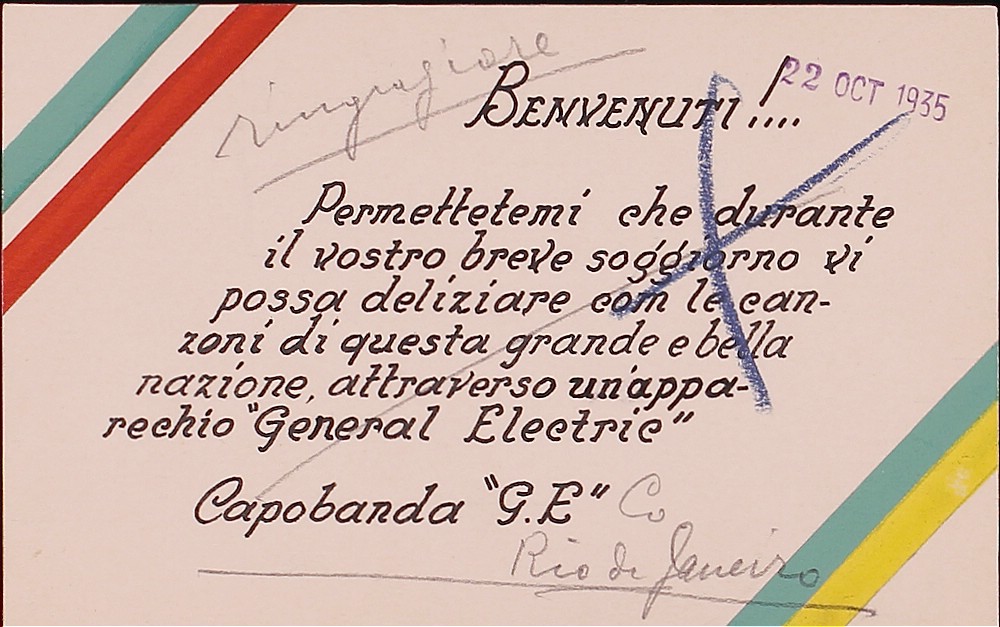 ringraziare
BENVENUTI!....
22 OCT 1935
Permettetemi che durante
il vostro breve soggiorno vi
possa deliziare com le can-
zoni di questa grande e bella
nazione, attraverso un'appa-
rechio "General Electric"
Capobanda "G.E" Co
Rio de Janeiro